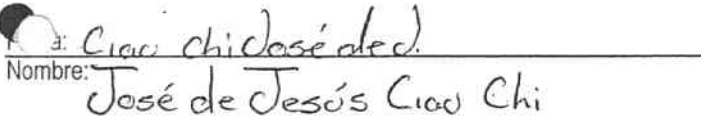 a: Ciau Chi José de J.
Nombre:
José de Jesús Ciau Chi